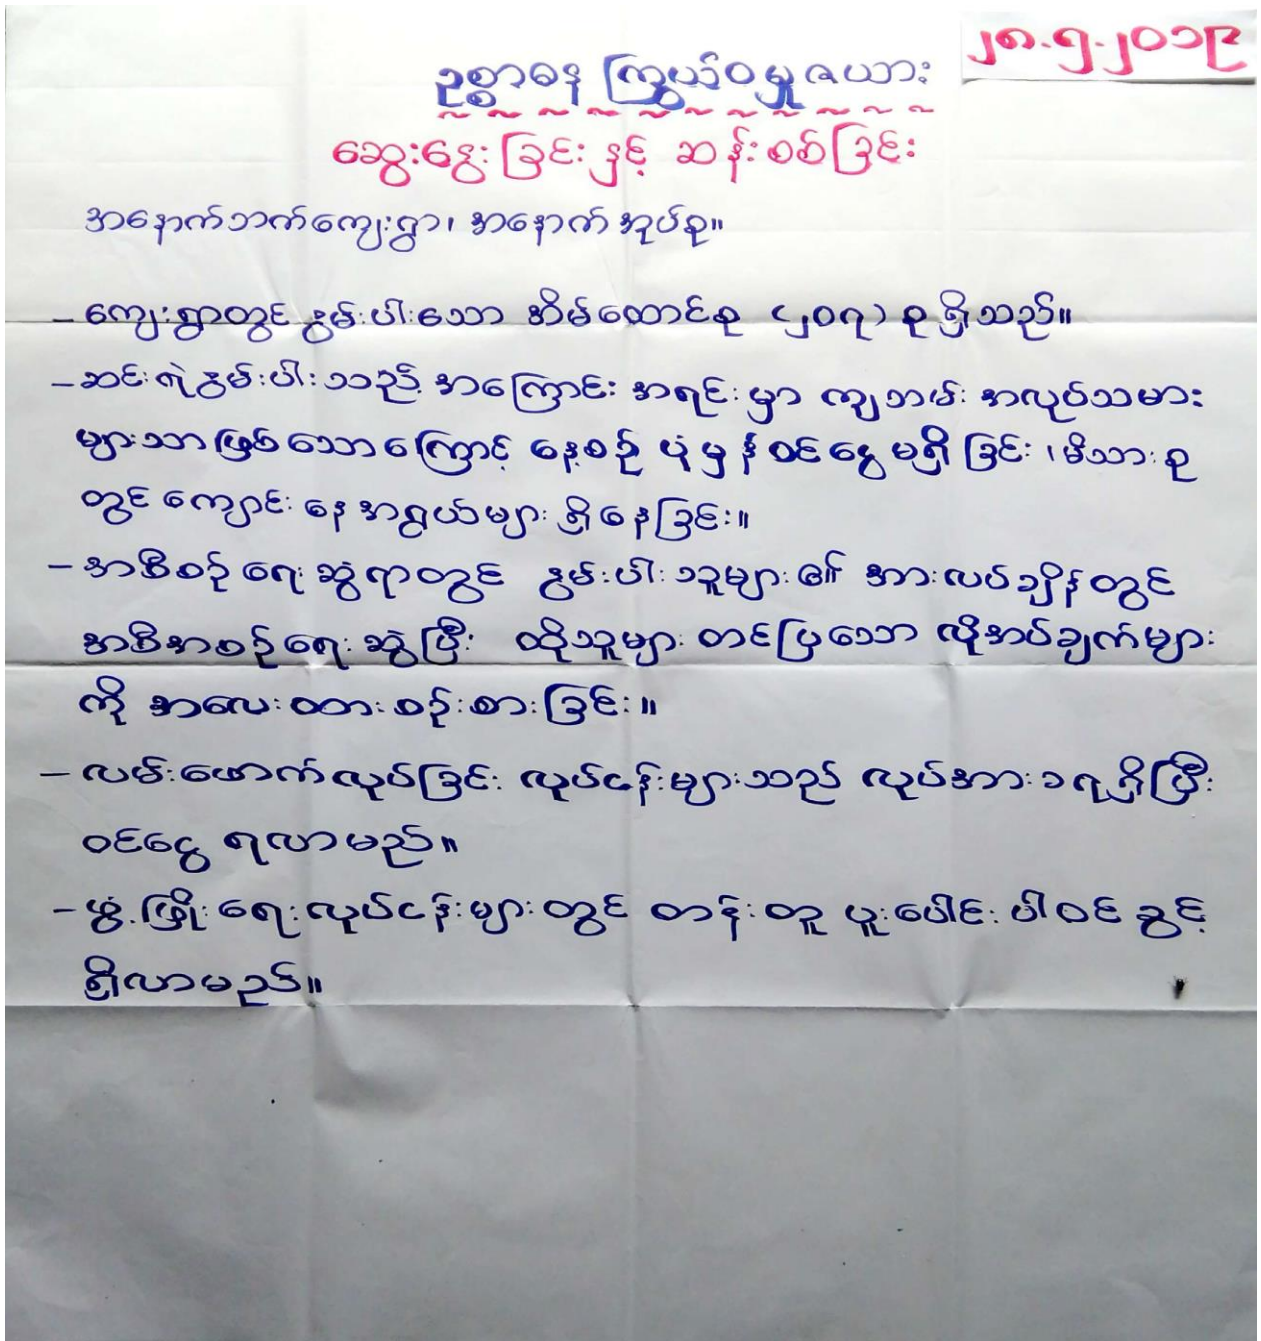 ၂၈.၅.၂၀၁၉
ဥစ္စာဓန ကြွယ်ဝမှုဇယား
ဆွေးနွေးခြင်းနှင့် ဆန်းစစ်ခြင်း
အနောက်ဘက်ကျေးရွာ၊ အနောက်အုပ်စု။
- ကျေးရွာတွင် နွမ်းပါးသော အိမ်ထောင်စု (၂၀၇) စု ရှိသည်။
- ဆင်းရဲနွမ်းပါးသည့် အကြောင်းအရင်းမှာ ကျဘမ်း အလုပ်သမား
များသာဖြစ်သောကြောင့် နေ့စဉ် ပုံမှန်ဝင်ငွေမရှိခြင်း၊ မိသားစု
တွင် ကျောင်းနေအရွယ်များ ရှိနေခြင်း။
- အစီစဉ်ရေးဆွဲရာတွင် နွမ်းပါးသူများ၏ အားလပ်ချိန်တွင်
အစီအစဉ်ရေးဆွဲပြီး ထိုသူများ တင်ပြသော လိုအပ်ချက်များ
ကို အလေးထားစဉ်းစားခြင်း။
- လမ်းဖောက်လုပ်ခြင်း လုပ်ငန်းများသည် လုပ်အားခရရှိပြီး
ဝင်ငွေ ရလာမည်။
- ဖွံ့ဖြိုးရေးလုပ်ငန်းများတွင် တန်းတူ ပူးပေါင်းပါဝင်ခွင့်
ရှိလာမည်။